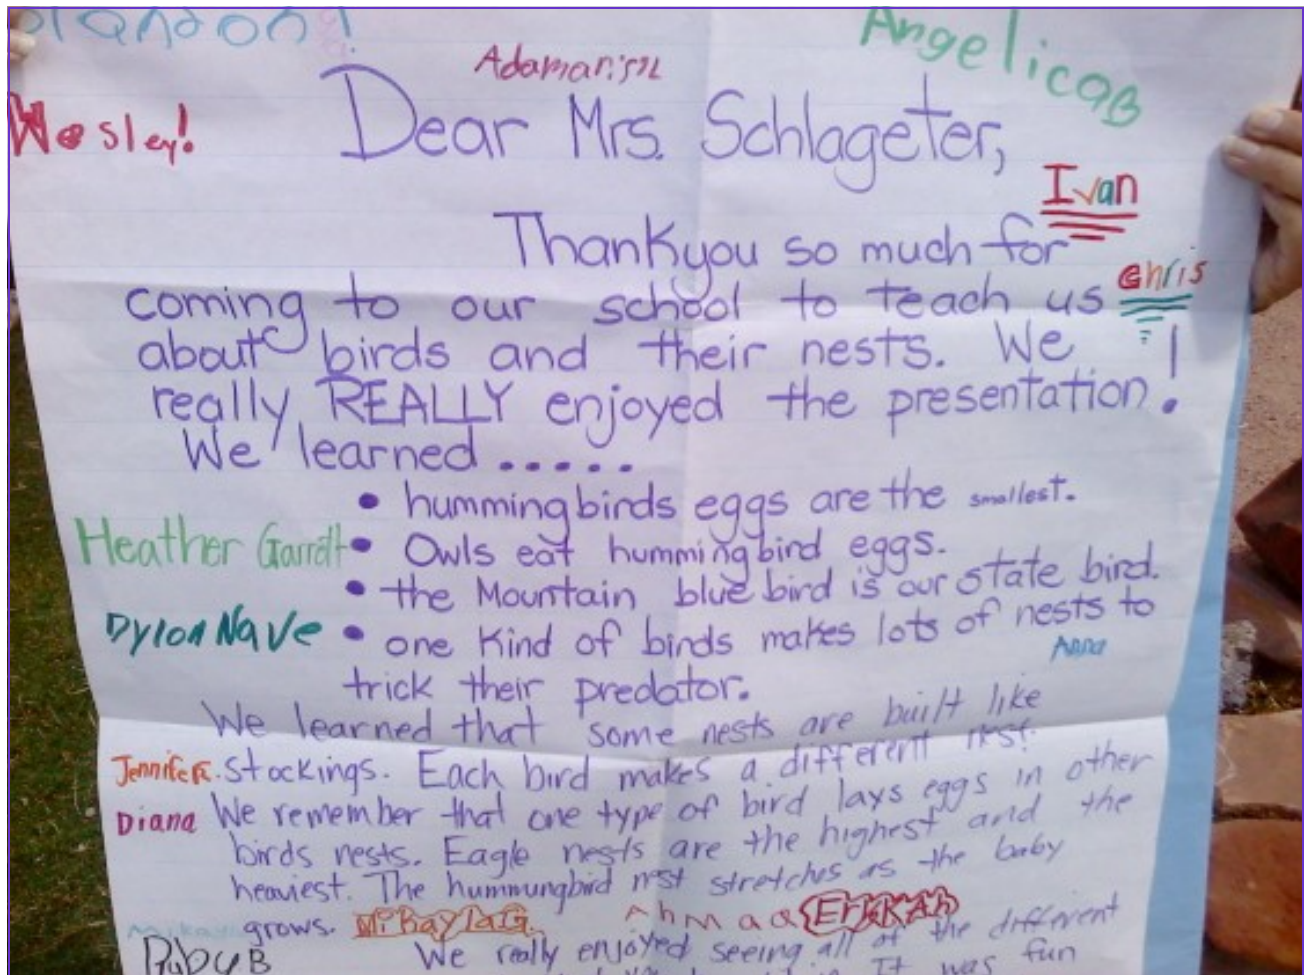 AngelicaB
Wesley!
Dear Mrs. Schlageter,
Ivan
Thankyou so much for
Chris
coming to our school to teach us
about birds and their nests. We
really REALLY enjoyed the presentation!
We learned .....
• hummingbirds eggs are the smallest.
Heather
• Owls eat hummingbird eggs.
• the Mountain blue bird is our state bird.
Dylon Nave
• one kind of birds makes lots of nests to
Anna
trick their predator.
We learned that some nests are built like
Jennifer
stockings. Each bird makes a different nest.
Diana
We remember that one type of bird lays eggs in other
birds nests. Eagle nests are the highest and the
heaviest. The hummungbird nest stretches as the baby
grows.
MikaylaG.
RubyB
We really enjoyed seeing all of the different
It was fun